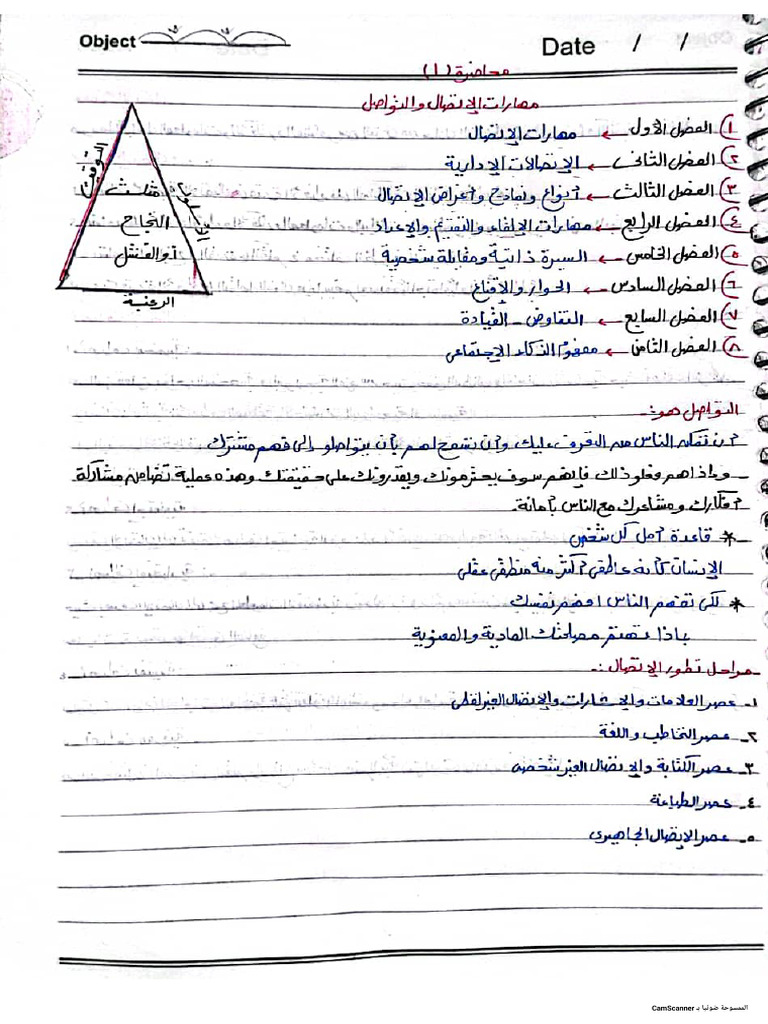 Object
Date / /
محاضرة (١)
مهارات الإتصال والتواصل
١) الفصل الأول ← مهارات الإتصال
٢) الفصل الثانى ← الإتصالات الإدارية
٣) الفصل الثالث ← أنواع ونماذج وأغراض الإتصال
٤) الفصل الرابع ← مهارات الإلقاء والتقديم والإعداد
٥) الفصل الخامس ← السيرة ذاتية ومقابلة شخصية
٦) الفصل السادس ← الحوار والإقناع
٧) الفصل السابع ← التفاوض - القيادة
٨) الفصل الثامن ← مفهوم الذكاء الإجتماعى
التوقيت
مثلث
النجاح
أو الفشل
الرغبة
التواصل هو:-
أن تمكن الناس من التعرف عليك وأن تسمح لهم بأن يتواصلو إلى فهم مشترك
- وإذا هم فعلو ذلك فإنهم سوف يحترمونك ويقدرونك على حقيقتك وهذه عملية تضامن مشاركة
أفكارك ومشاعرك مع الناس بأمانة.
* قاعدة أمل كل شخص
الإنسان كأنه عاطفى أكثر منه منطقى عقلى
* لكى تفهم الناس افهم نفسك
بماذا تهتم مصلحتك المادية والمعنوية
مراحل تطور الإتصال :-
١- عصر العلامات والإشارات والإتصال الغير لفظى
٢- عصر التخاطب واللغة
٣- عصر الكتابة والإتصال الغير شخصى
٤- عصر الطباعة
٥- عصر الإتصال الجماهيرى
الممسوحة ضوئيا بـ CamScanner